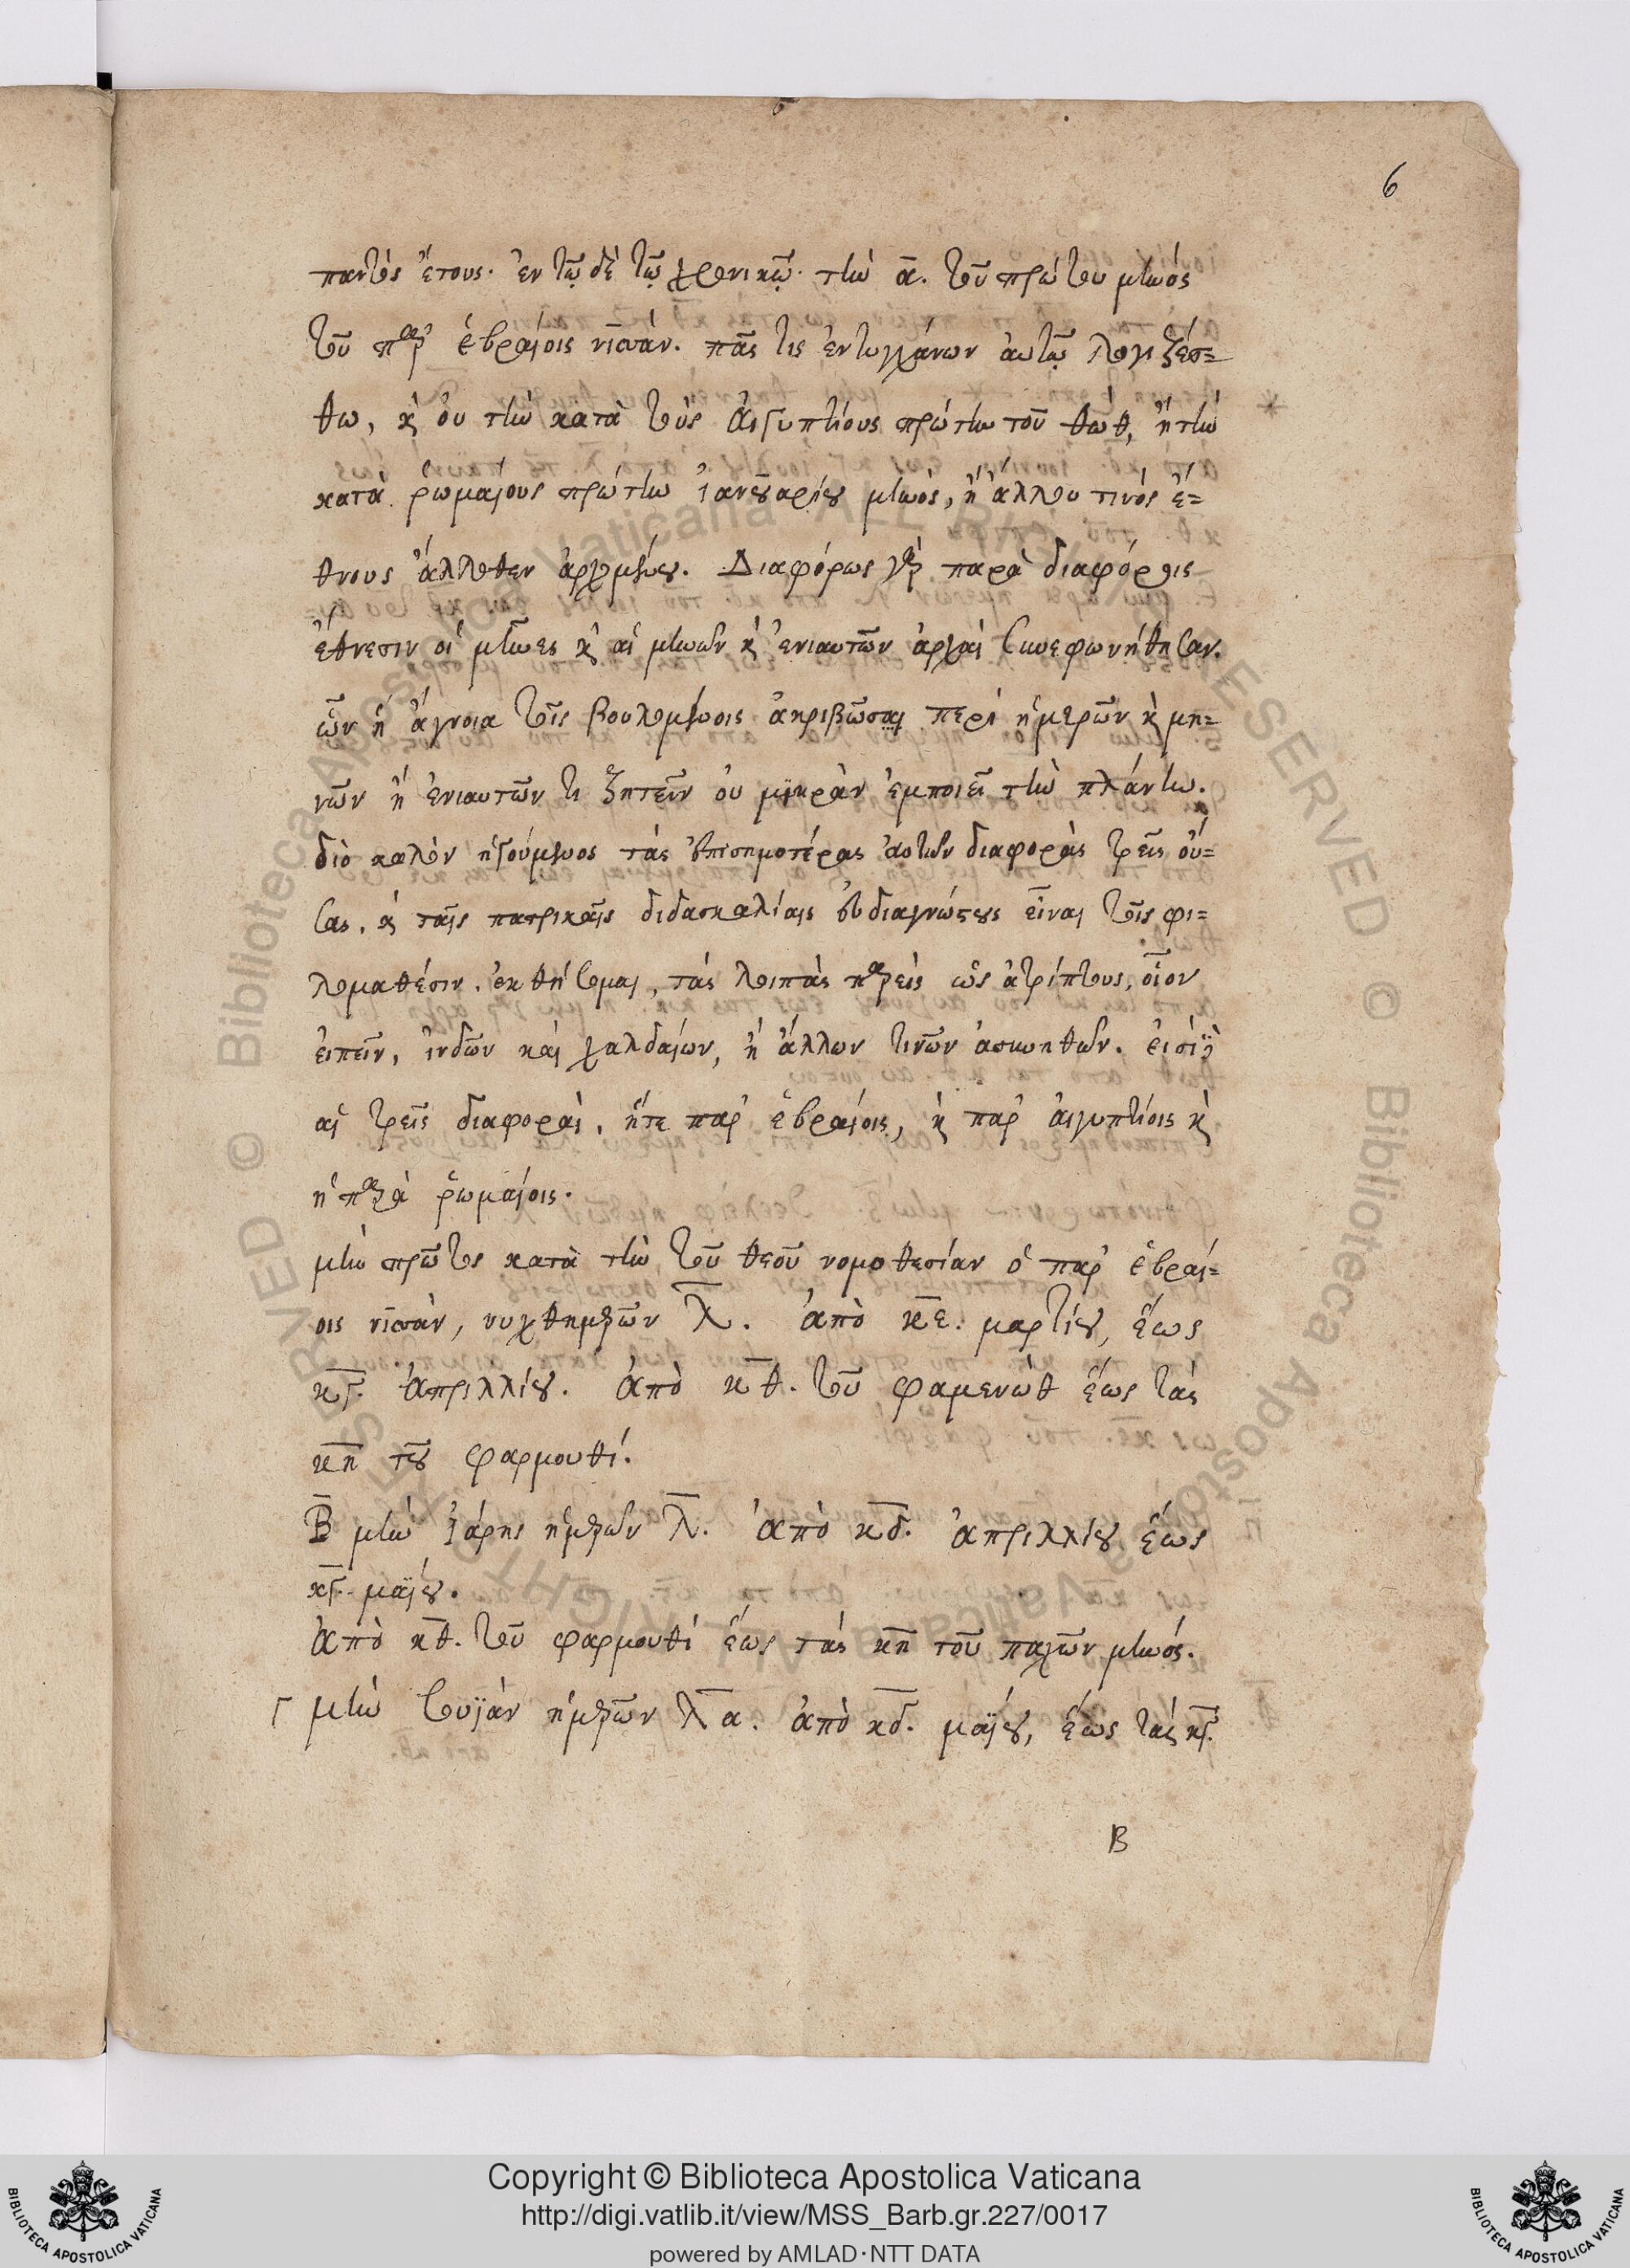 6
παντὸς ἔτους· ἐν τῷ δὲ τῷ χρονικῷ· τὴν ᾱ. τοῦ πρώτου μηνὸς
τοῦ παρ' ἑβραίοις νισάν. πᾶς τις ἐντυγχάνων αὐτῷ λογιζέσ=
θω, κ οὐ τὴν κατὰ τοὺς Αἰγυπτίους πρώτην τοῦ θὼθ, ἢ τὴν
κατὰ ῥωμαίους πρώτην ἰανουαρίου μηνὸς, ἢ ἄλλου τινὸς ἔ=
θνους ἄλλοθεν ἀρχομένου. Διαφόρως γὰρ παρὰ διαφόροις
ἔθνεσιν οἱ μῆνες κ αἱ μηνῶν κ ἐνιαυτῶν ἀρχαὶ ἐκυεφωνήθησαν.
ὧν ἡ ἄγνοια τοῖς βουλομένοις ἀκριβῶσαι περὶ ἡμερῶν κ μη=
νῶν ἢ ἐνιαυτῶν τι ζητεῖν οὐ μικρὰν ἐμποιεῖ τὴν πλάνην.
διὸ καλὸν ἡγούμενος τὰς ἐπισημοτέρας αὐτῶν διαφορὰς τρεῖς οὔ=
σας, κ ταῖς πατρικαῖς διδασκαλίαις εὐδιαγνώστους εἶναι τοῖς φι=
λομαθέσιν. ἐκθήσομαι, τὰς λοιπὰς παρεὶς ὡς ἀτρίπτους, οἷον
εἰπεῖν, ἰνδῶν καὶ χαλδαίων, ἢ ἄλλων τινῶν ἀσυνηθῶν. εἰσὶ δὲ
αἱ τρεῖς διαφοραὶ, ἥτε παρ' ἑβραίοις, κ παρ' αἰγυπτίοις κ
ἡ παρὰ ῥωμαίοις.
μὴν πρῶτος κατὰ τὴν τοῦ θεοῦ νομοθεσίαν ὁ παρ' ἑβραί=
οις νισὰν, νυχθημέρων λ̄. ἀπὸ κ̄ε. μαρτίου, ἕως
κ̄γ. ἀπριλλίου. ἀπὸ κ̄θ. τοῦ φαμενὼθ ἕως τὰς
κ̄η τοῦ φαρμουθί.
Β̄ μὴν ἰάρης ἡμερῶν λ̄. ἀπὸ κ̄δ. ἀπριλλίου ἕως
κ̄γ. μαΐου.
ἀπὸ κ̄θ. τοῦ φαρμουθὶ ἕως τὰς κ̄η τοῦ παχὼν μηνός.
Γ μὴν σουϊὰν ἡμερῶν λ̄α. ἀπὸ κ̄δ. μαΐου, ἕως τὰς κ̄γ.
B
Copyright © Biblioteca Apostolica Vaticana
http://digi.vatlib.it/view/MSS_Barb.gr.227/0017
powered by AMLAD·NTT DATA